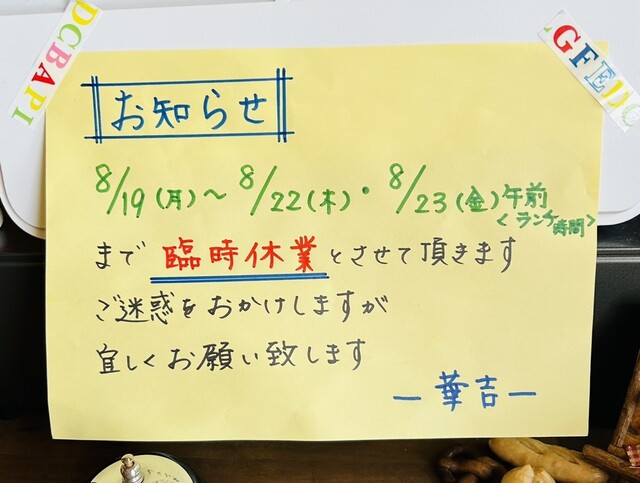 DCBAPI
GFEDC
お知らせ
8/19(月)～8/22(木)・8/23(金)午前
<ランチ時間>
まで臨時休業とさせて頂きます
ご迷惑をおかけしますが
宜しくお願い致します
ー華吉ー